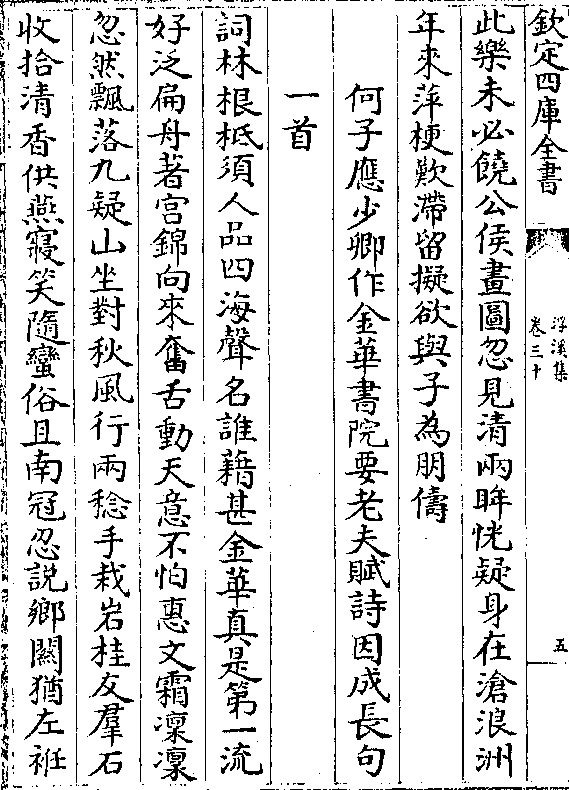 欽定四庫全書
浮溪集
卷三十
五
此樂未必饒公侯畫圖忽見清兩眸恍疑身在滄浪洲
年來萍梗歎滯留擬欲與子為朋儔
何子應少卿作金華書院要老夫賦詩因成長句
一首
詞林根柢須人品四海聲名誰藉甚金華真是第一流
好泛扁舟著宮錦向來奮舌動天意不怕惠文霜凜凜
忽然飄落九疑山坐對秋風行兩稔手栽岩桂友羣石
收拾清香供燕寢笑隨蠻俗且南冠忍說鄉關猶左袵